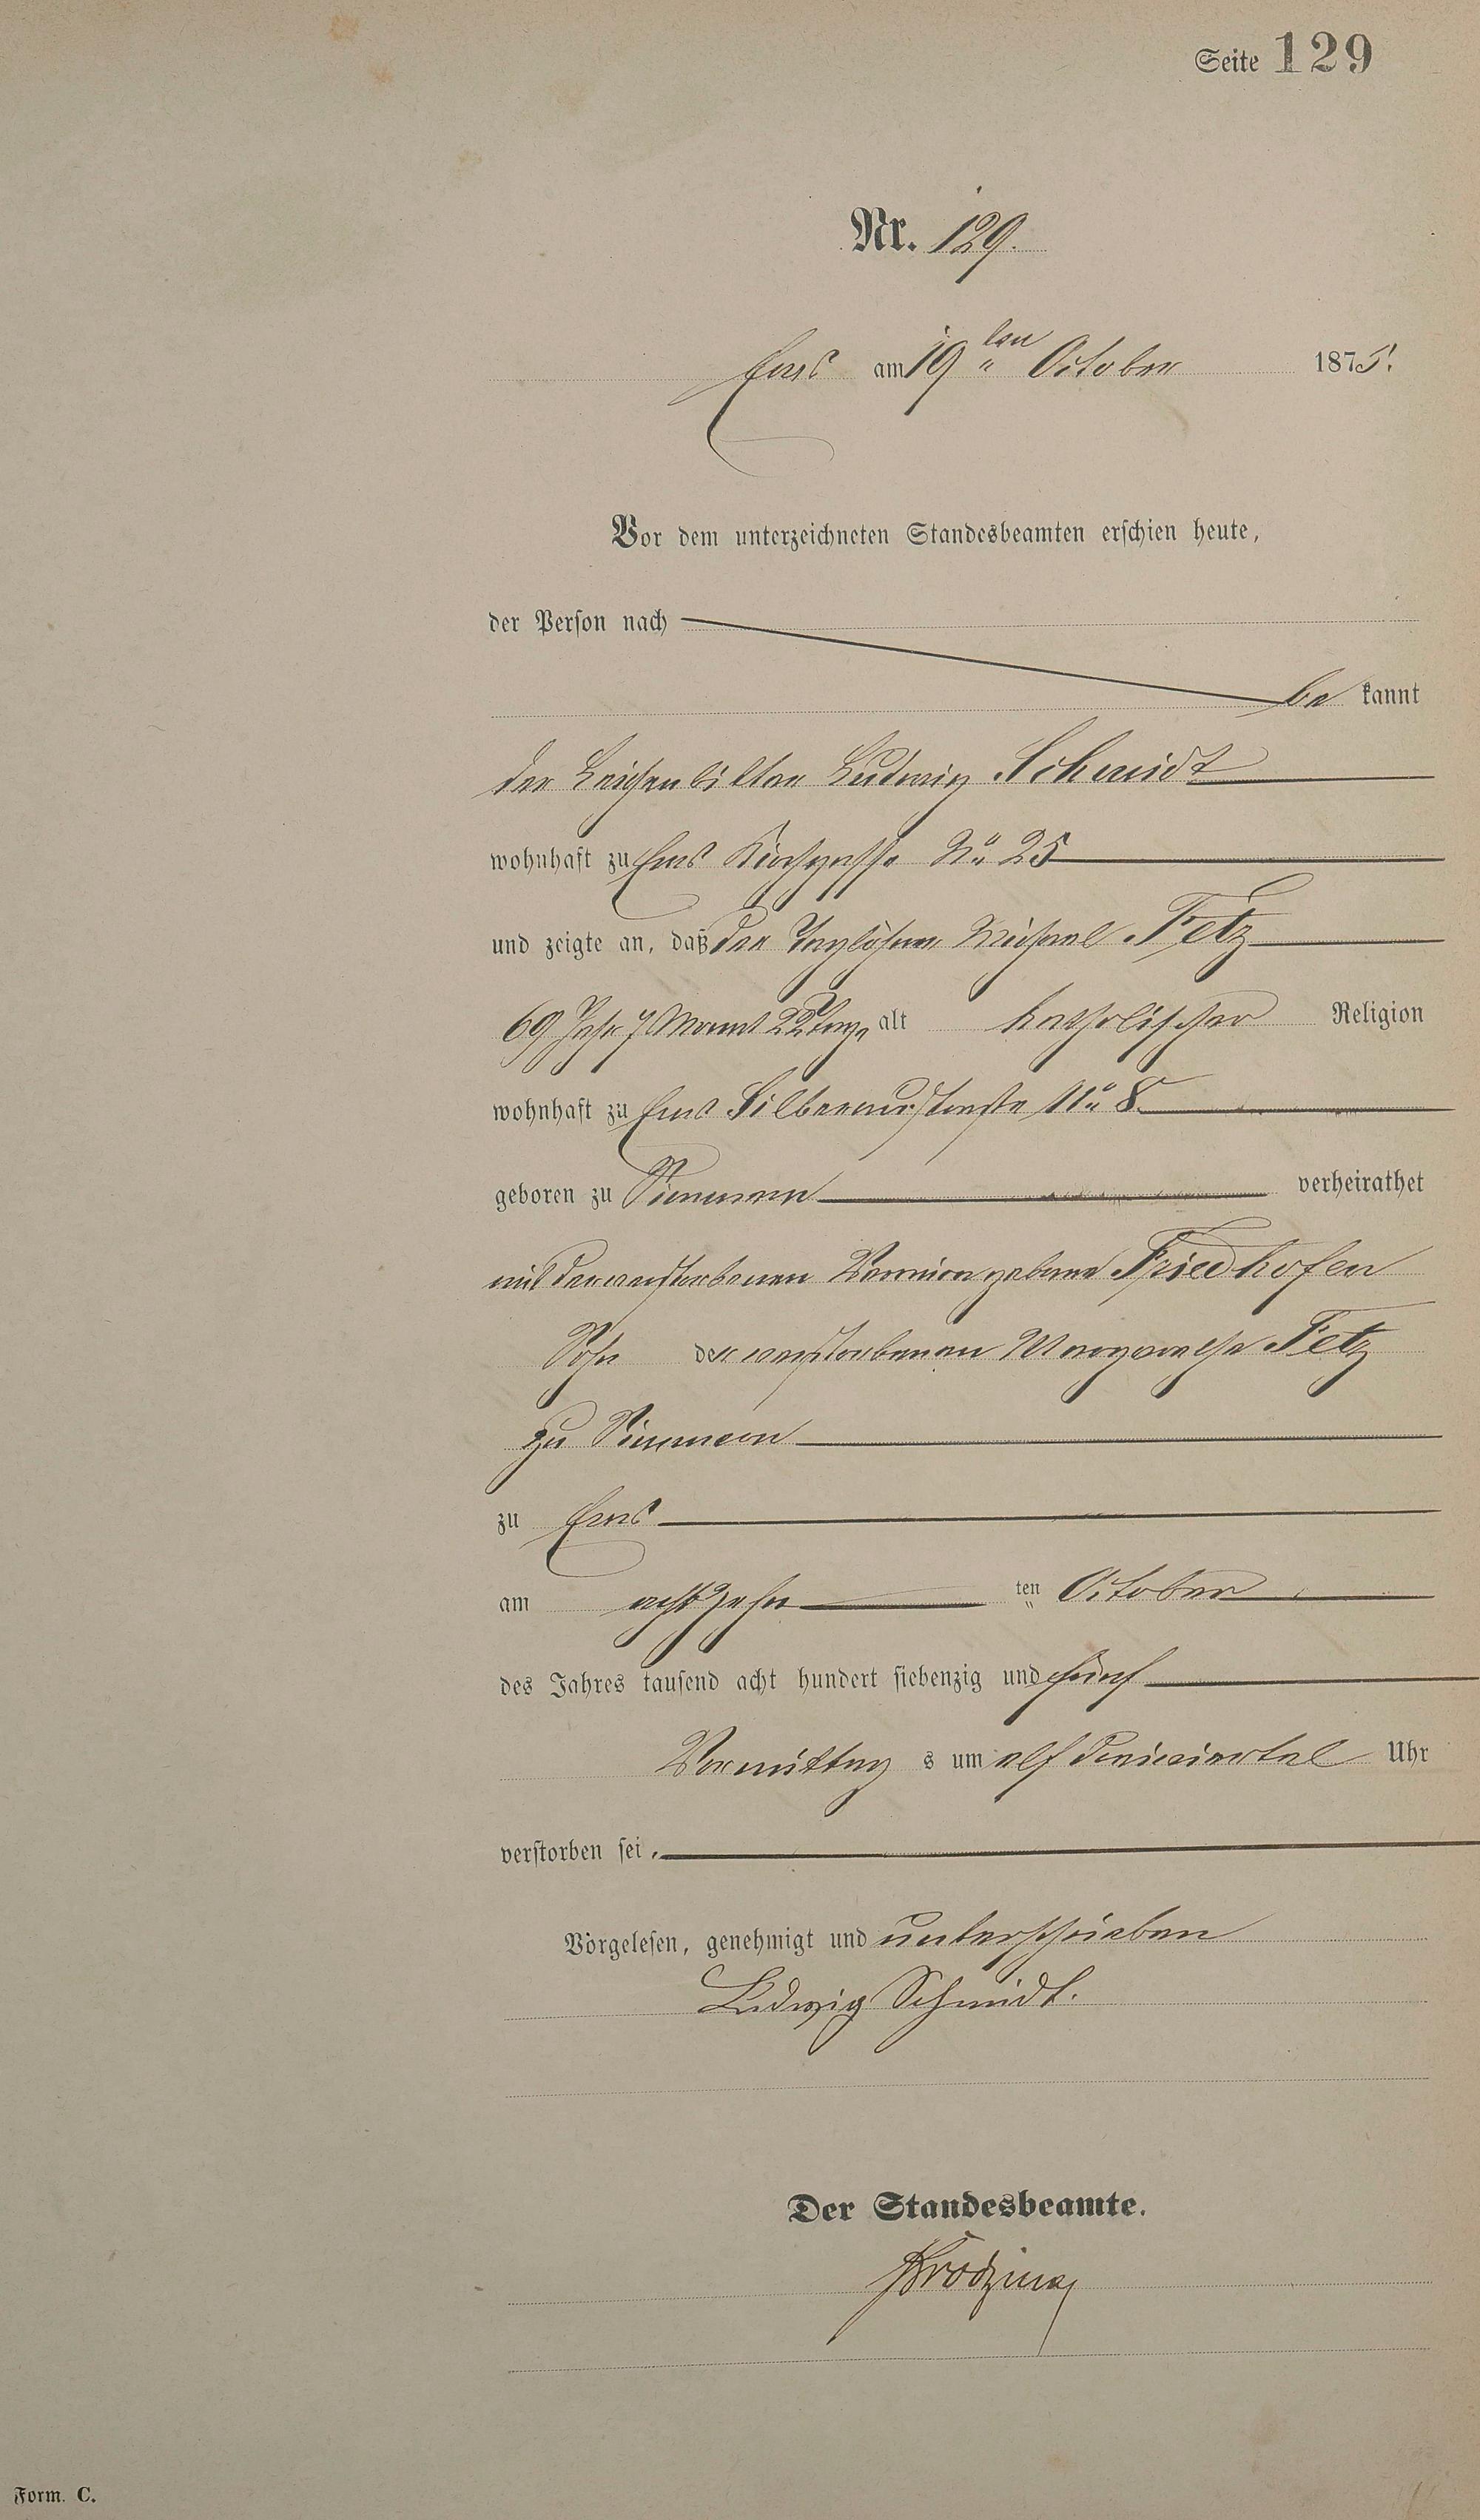 Seite 129
Nr. 129.
Ems am 19ten October 1875.
Vor dem unterzeichneten Standesbeamten erschien heute,
der Person nach
be kannt
der Leichenbitter Ludwig Schmidt
wohnhaft zu Ems Kirchgasse No 25
und zeigte an, daß der Taglöhner Michael Fetz
69 Jahr 7 Monat 22 Tage alt katholischer Religion
wohnhaft zu Ems Silberaustraße No 8
geboren zu Simmern verheirathet
mit der verstorbenen Veronica geborne Friedhofen
Sohn der verstorbenen Margarethe Fetz
zu Simmern
zu Ems
am achtzehn ten October
des Jahres tausend acht hundert siebenzig und fünf
Vormittag s um elf dreiviertel Uhr
verstorben sei.
Vorgelesen, genehmigt und unterschrieben
Ludwig Schmidt.
Der Standesbeamte.
Form. C.